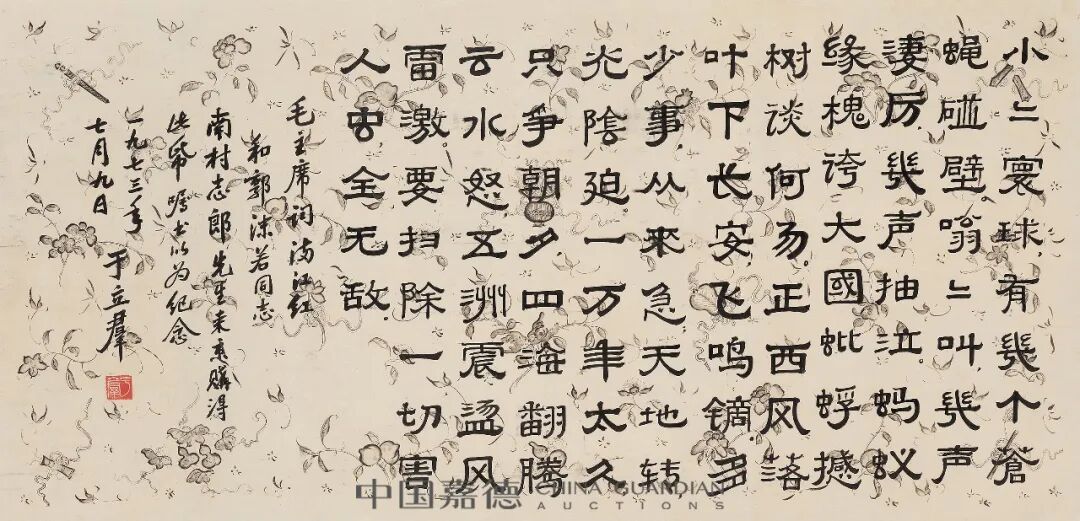 小〻寰球有幾个蒼
蝇碰壁嗡〻叫幾声
淒厉幾声抽泣蚂蚁
缘槐誇大國蚍蜉撼
树谈何易正西风落
叶下长安飞鸣镝多
少事从来急天地转
光陰迫一万年太久
只争朝夕四海翻腾
云水怒五洲震盪风
雷激要扫除一切害
人虫全无敌
毛主席词满江红
和郭沫若同志
南村志郎先生来京購得
此帋嘱书以为纪念
一九七三年
七月九日
于立羣
中国嘉德 CHINA GUARDIAN
AUCTIONS